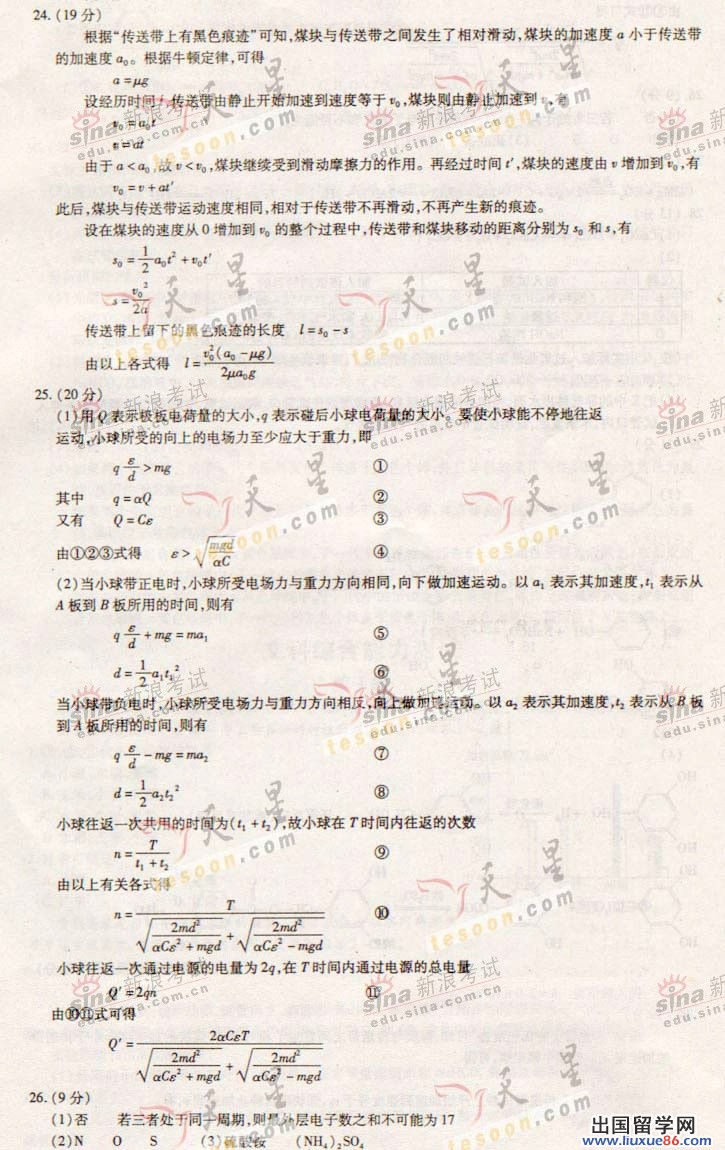 24. (19分)
根据“传送带上有黑色痕迹”可知,煤块与传送带之间发生了相对滑动,煤块的加速度 a 小于传送带
的加速度 a₀。根据牛顿定律,可得
a=μg
设经历时间 t,传送带由静止开始加速到速度等于 v₀,煤块则由静止加速到 v,有
v₀=a₀t
v=at
由于 a<a₀,故 v<v₀,煤块继续受到滑动摩擦力的作用。再经过时间 t′,煤块的速度由 v 增加到 v₀,有
v₀=v+at′
此后,煤块与传送带运动速度相同,相对于传送带不再滑动,不再产生新的痕迹。
设在煤块的速度从 0 增加到 v₀ 的整个过程中,传送带和煤块移动的距离分别为 s₀ 和 s,有
s₀=1/2 a₀t²+v₀t′
s=v₀²/2a
传送带上留下的黑色痕迹的长度 l=s₀-s
由以上各式得 l=v₀²(a₀-μg)/2μa₀g
25. (20分)
(1)用 Q 表示极板电荷量的大小,q 表示碰后小球电荷量的大小。要使小球能不停地往返
运动,小球所受的向上的电场力至少应大于重力,即
q ε/d >mg ①
其中 q=αQ ②
又有 Q=Cε ③
由①②③式得 ε>√(mgd/αC) ④
(2)当小球带正电时,小球所受电场力与重力方向相同,向下做加速运动。以 a₁ 表示其加速度,t₁ 表示从
A 板到 B 板所用的时间,则有
q ε/d +mg=ma₁ ⑤
d=1/2 a₁t₁² ⑥
当小球带负电时,小球所受电场力与重力方向相反,向上做加速运动。以 a₂ 表示其加速度,t₂ 表示从 B 板
到 A 板所用的时间,则有
q ε/d -mg=ma₂ ⑦
d=1/2 a₂t₂² ⑧
小球往返一次共用的时间为(t₁+t₂),故小球在 T 时间内往返的次数
n=T/(t₁+t₂) ⑨
由以上有关各式得
n=T/(√(2md²/(αCε²+mgd))+√(2md²/(αCε²-mgd))) ⑩
小球往返一次通过电源的电量为 2q,在 T 时间内通过电源的总电量
Q′=2qn ⑪
由⑩⑪式可得
Q′=2αCεT/(√(2md²/(αCε²+mgd))+√(2md²/(αCε²-mgd)))
26. (9分)
(1)否 若三者处于同一周期,则最外层电子数之和不可能为17
(2)N O S (3)硫酸铵 (NH₄)₂SO₄
出国留学网
www.liuxue86.com